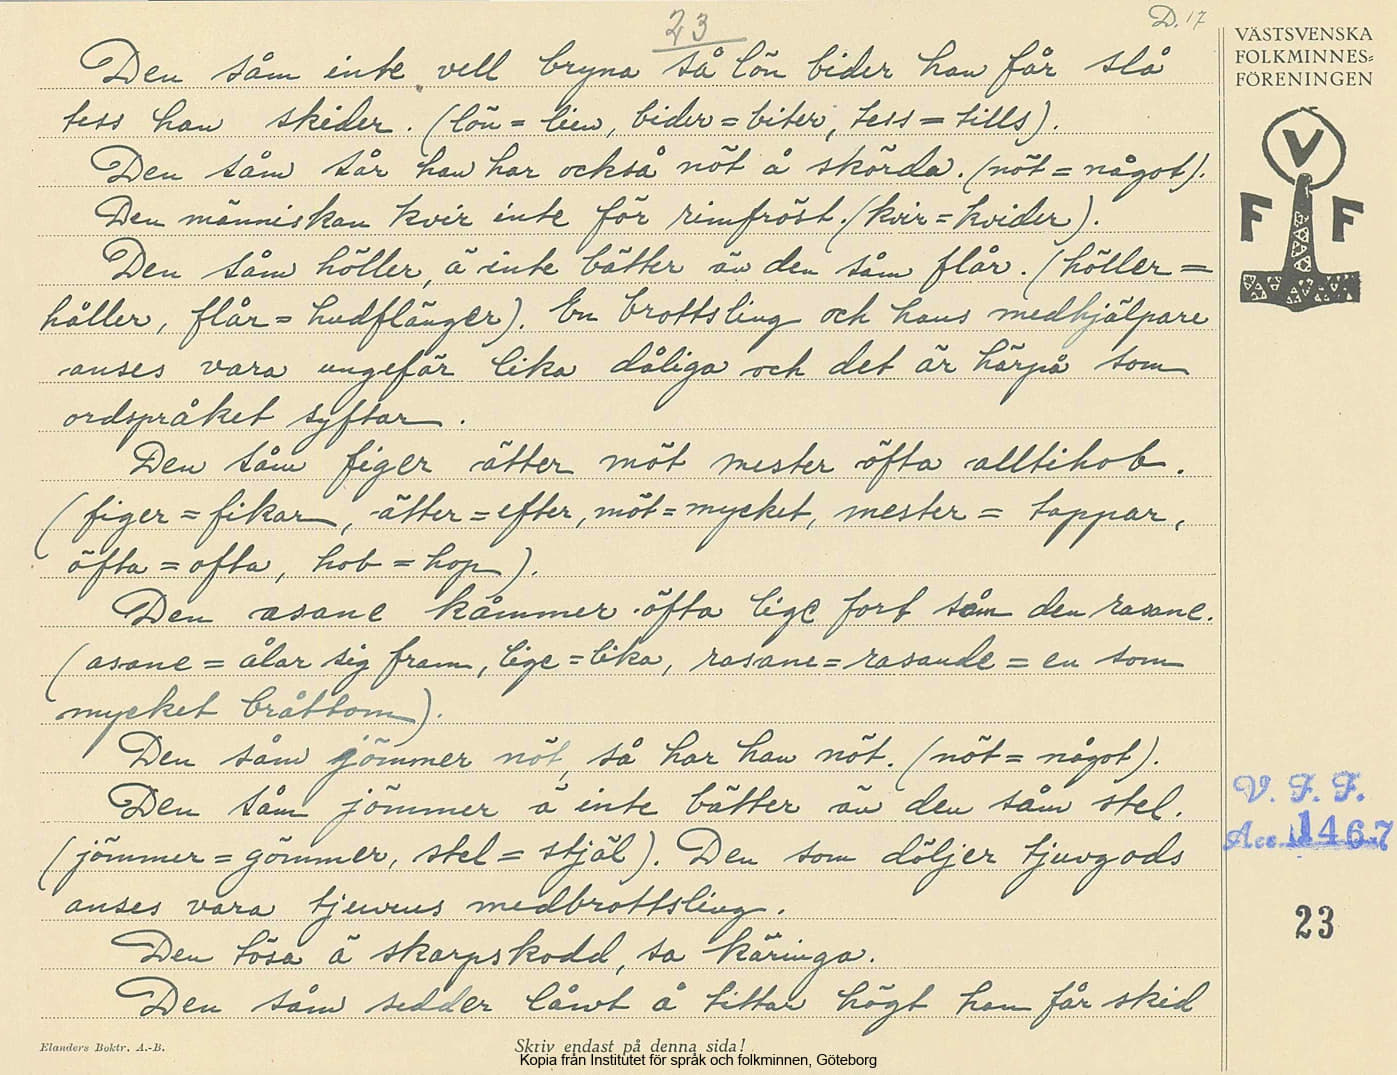 23
D. 17
VÄSTSVENSKA
FOLKMINNES=
FÖRENINGEN
V
F F
Den såm inte vell bryna så lön bider han får slå
tess han skider. (lön = lien, bider = biter, tess = tills).
Den såm sår han har också nöt å skörda. (nöt = något).
Den människan kvir inte för rimfröst. (kvir = kvider).
Den såm höller, ä inte bätter än den såm flår. (höller =
håller, flår = hudflänger). En brottsling och hans medhjälpare
anses vara ungefär lika dåliga och det är härpå som
ordspråket syftar.
Den såm figer ätter möt mester öfta alltihob.
(figer = fikar, ätter = efter, möt = mycket, mester = tappar,
öfta = ofta, hob = hop).
Den asane kåmmer öfta lige fort såm den rasane.
(asane = ålar sig fram, lige = lika, rasane = rasande = en som
mycket bråttom).
Den såm jömmer nöt, så har han nöt. (nöt = något).
Den såm jömmer ä inte bätter än den såm stel.
(jömmer = gömmer, stel = stjäl). Den som döljer tjuvgods
anses vara tjuvens medbrottsling.
Den tösa ä skarpskodd, sa käringa.
Den såm sedder låwt å tittar högt han får skid
V. F. F.
Acc. 1467
23
Elanders Boktr. A.-B.
Skriv endast på denna sida!
Kopia från Institutet för språk och folkminnen, Göteborg